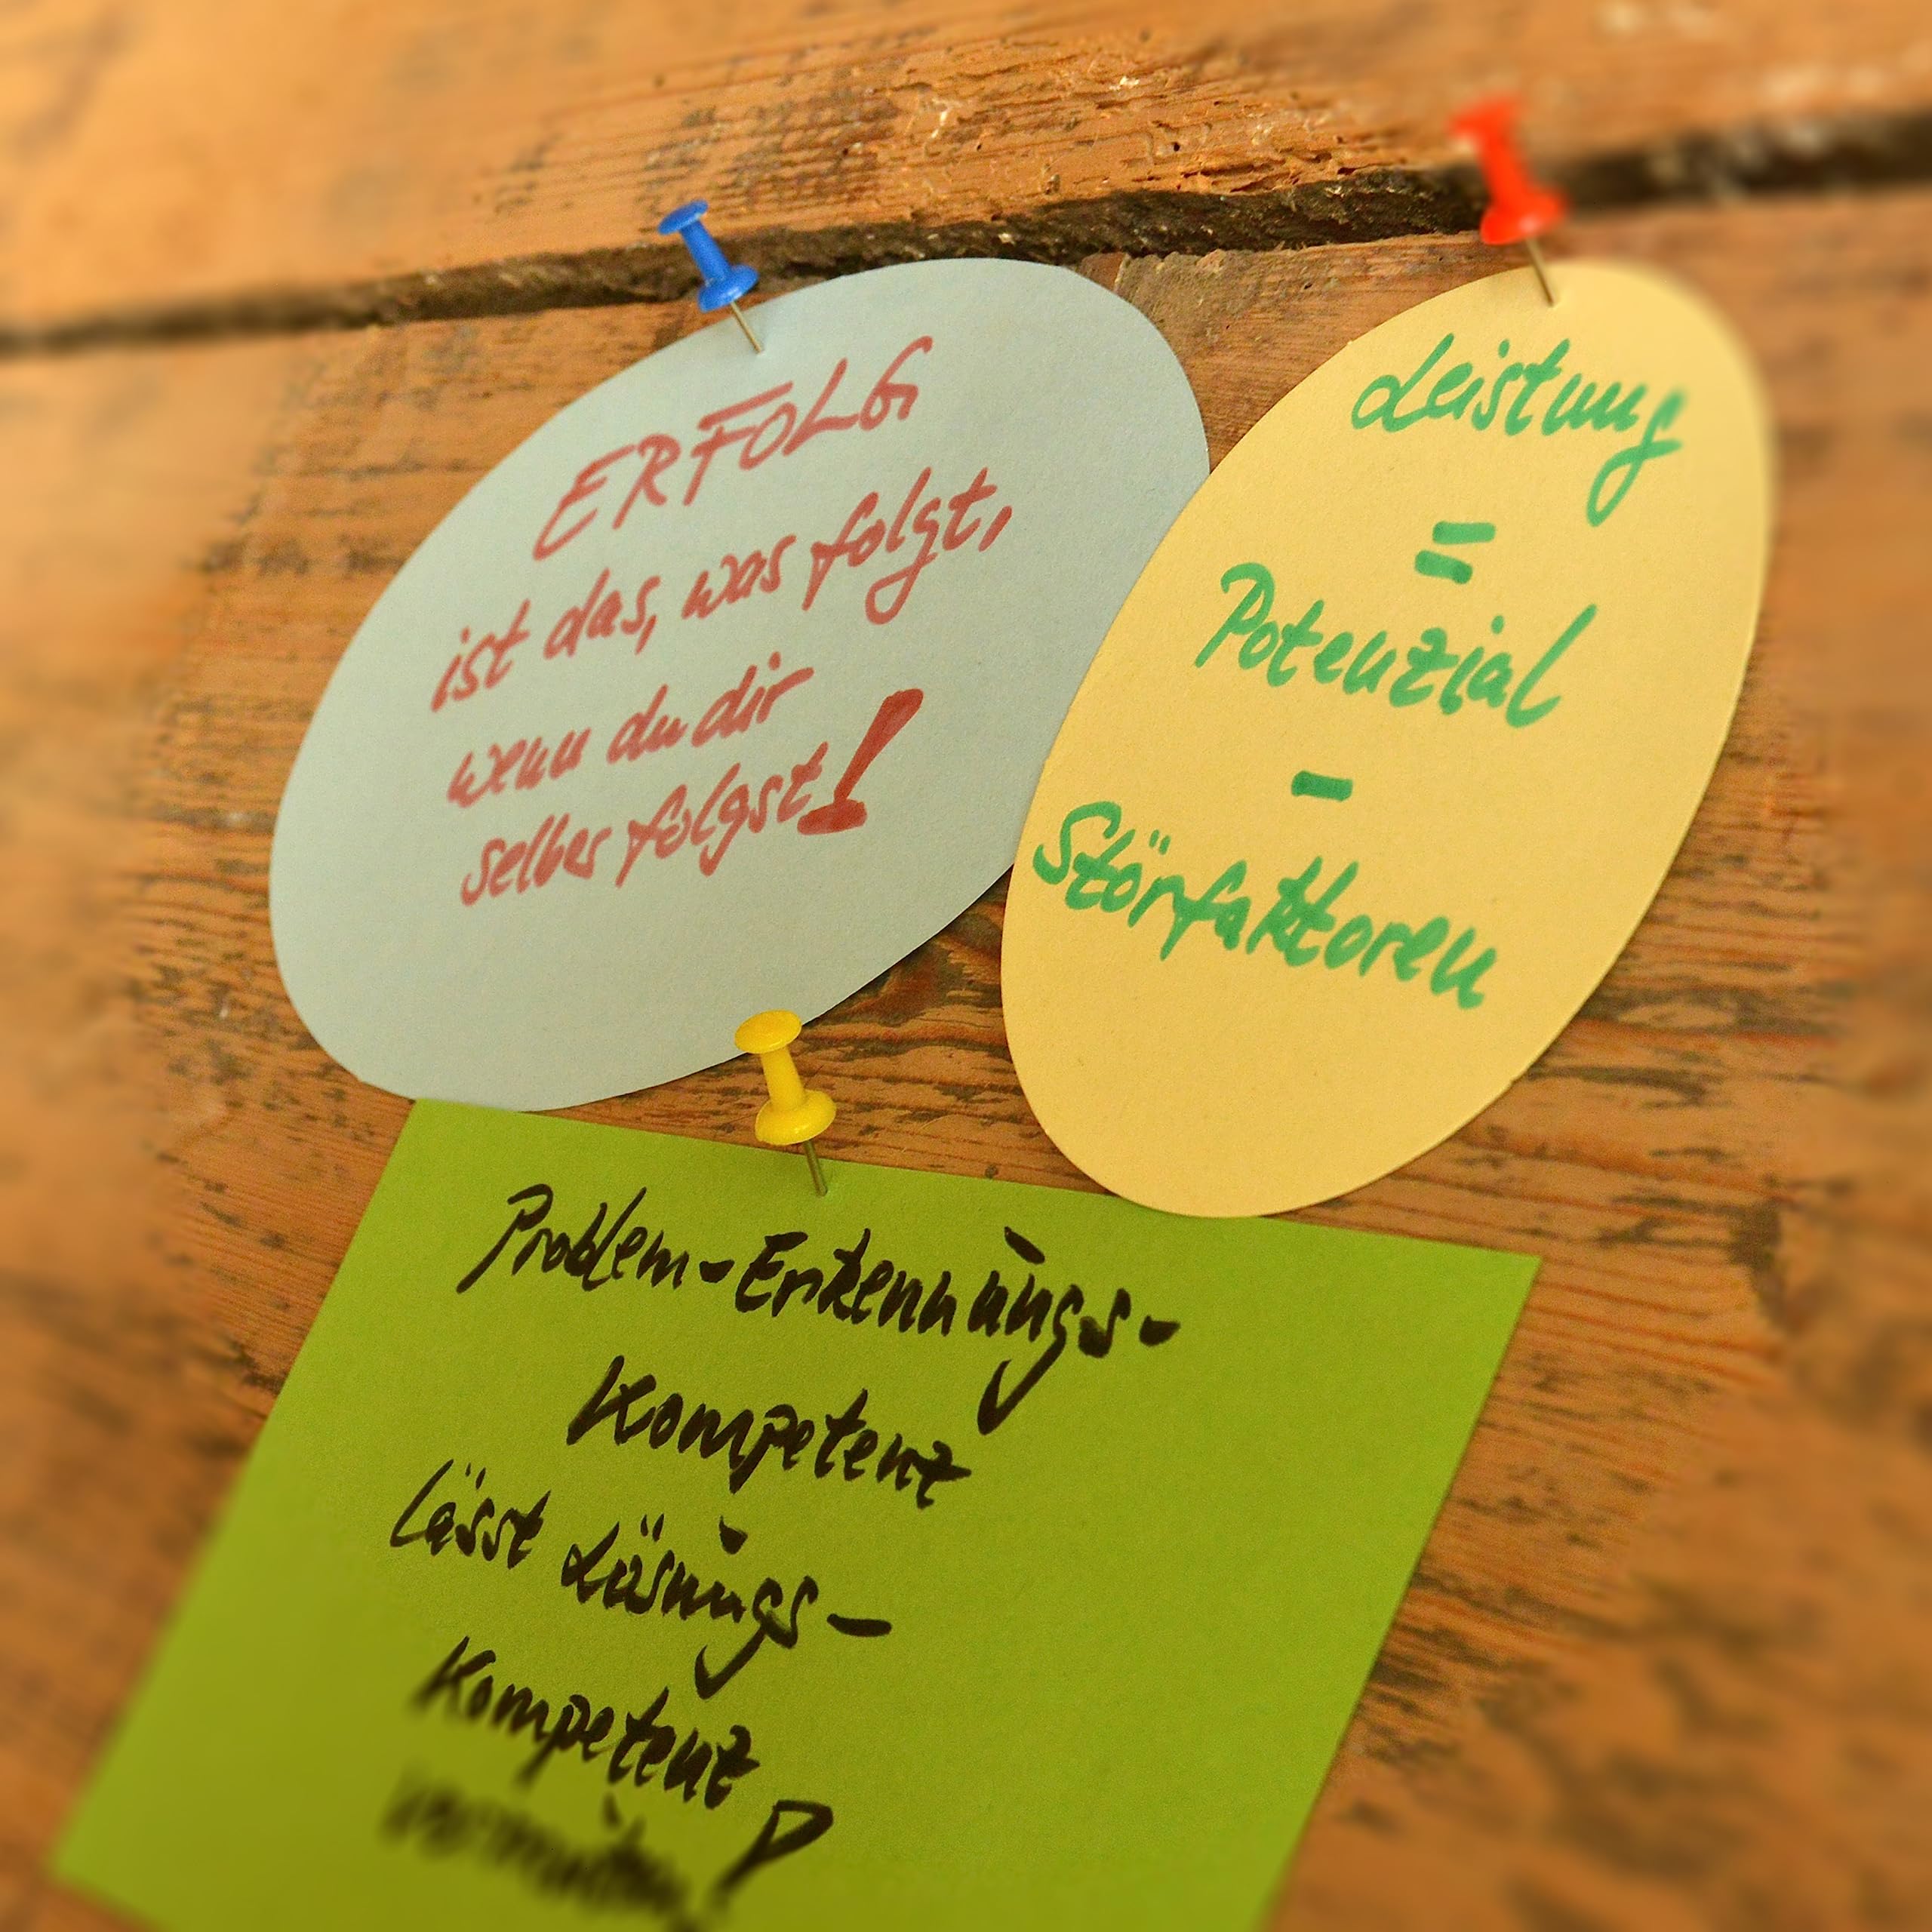 ERFOLG
ist das, was folgt,
wenn du dir
selber folgst!
Leistung
=
Potenzial
-
Störfaktoren
Problem-Erkennungs-
Kompetenz
lässt Lösungs-
Kompetenz
vermuten!